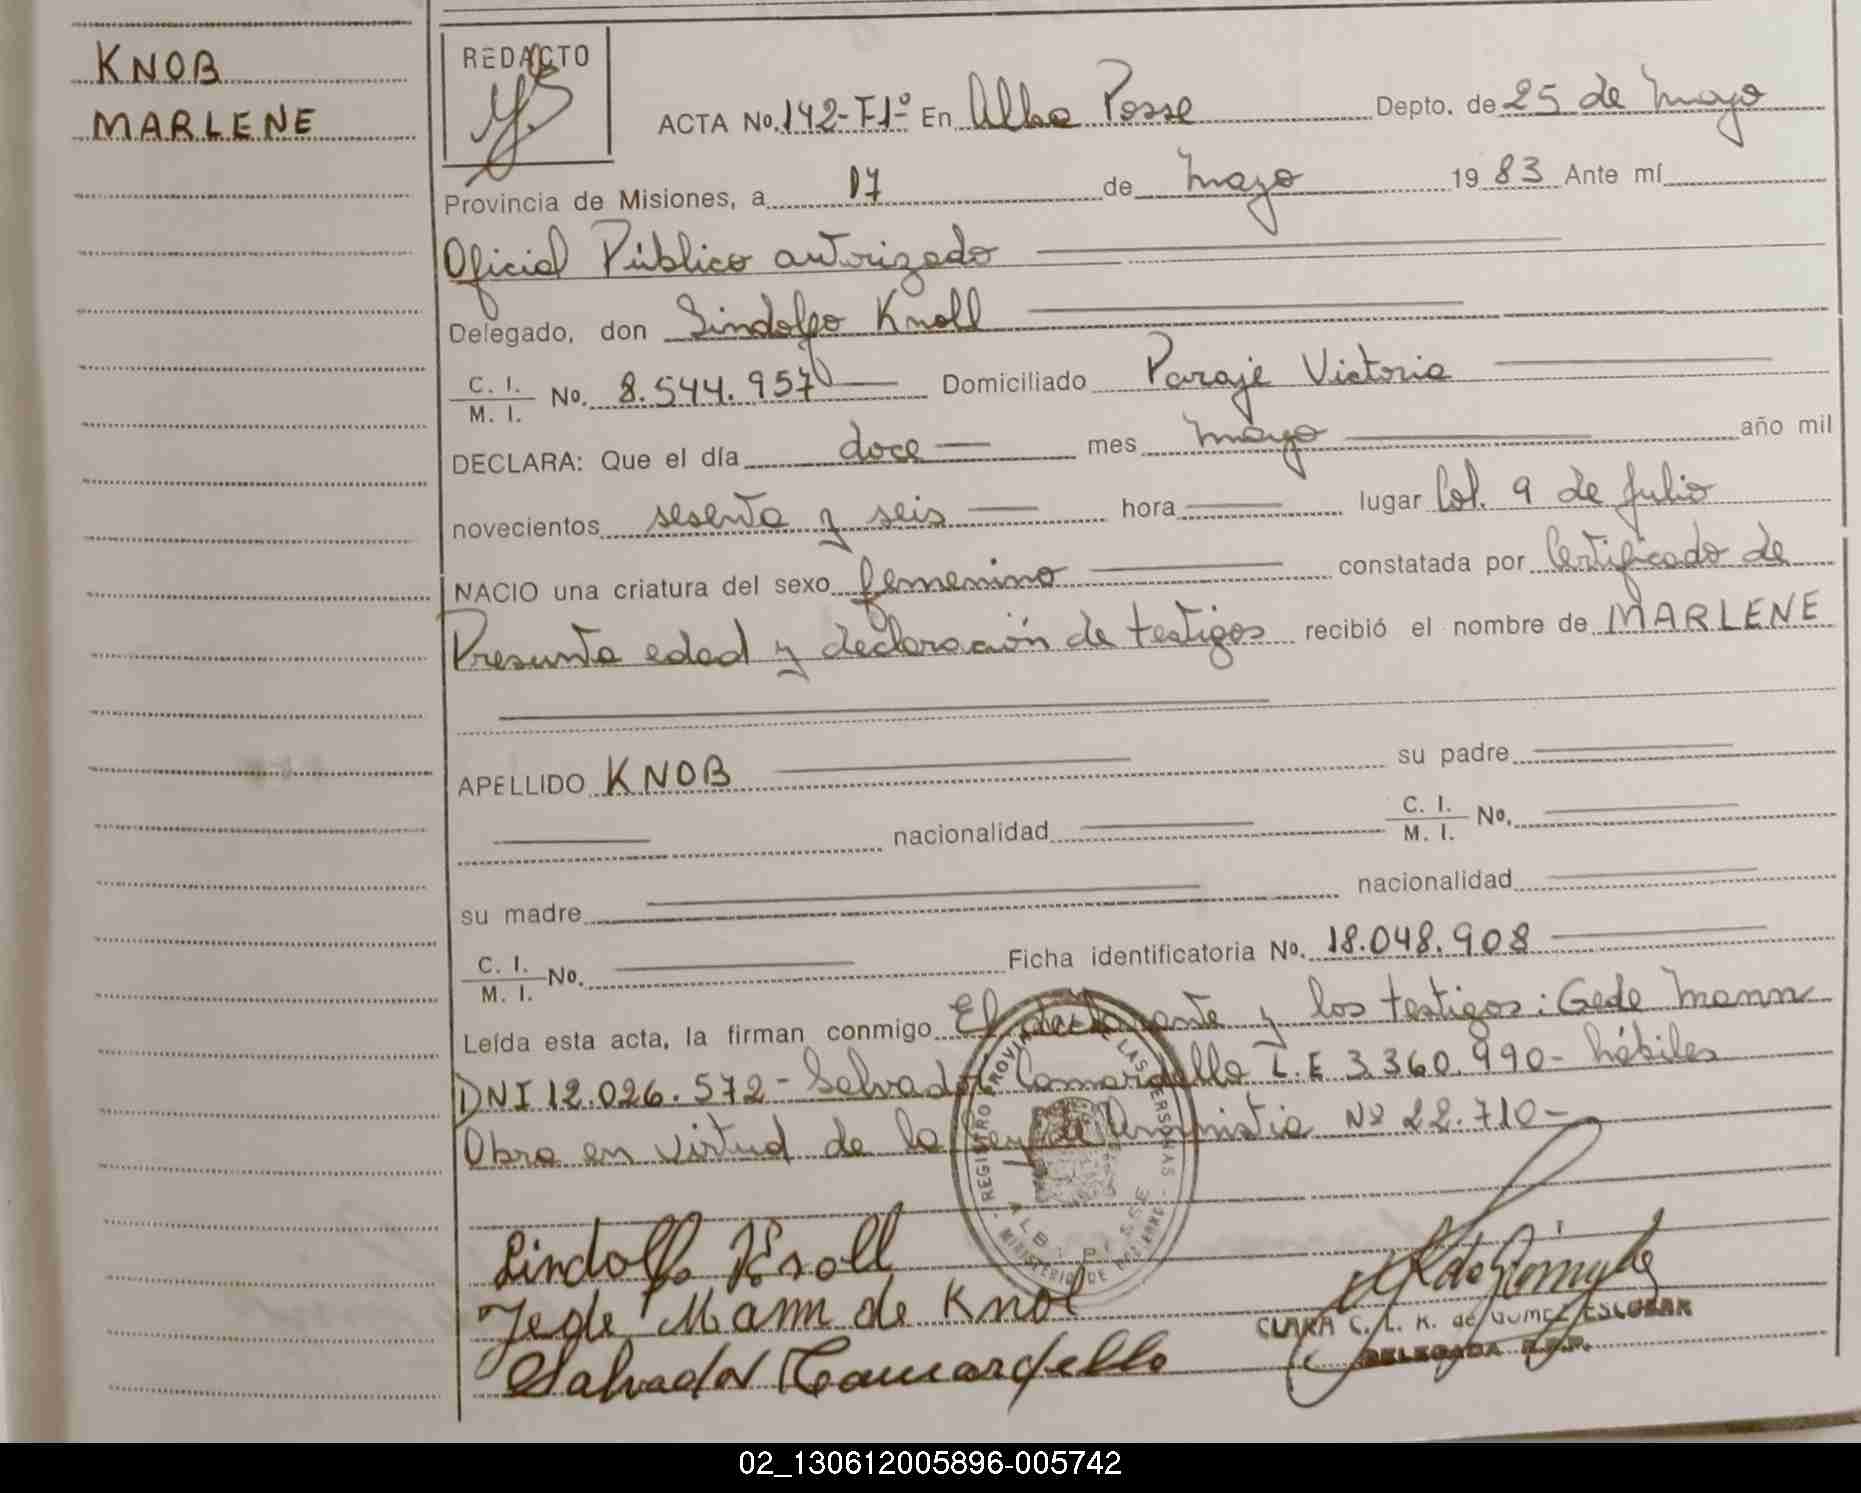 KNOB
MARLENE
REDACTO
ACTA No. 142-T1º En Alba Posse Depto. de 25 de Mayo
Provincia de Misiones, a 17 de mayo 1983 Ante mí
Oficial Público autorizado
Delegado, don Lindolfo Knoll
C. I.
M. I. No. 8.544.957 Domiciliado Paraje Victoria
DECLARA: Que el día doce mes mayo año mil
novecientos sesenta y seis hora lugar Col. 9 de Julio
NACIO una criatura del sexo femenino constatada por Certificado de
Presunta edad y declaración de testigos recibió el nombre de MARLENE
APELLIDO KNOB su padre
nacionalidad C. I.
M. I. No.
su madre nacionalidad
C. I.
M. I. No. Ficha identificatoria No. 18.048.908
Leída esta acta, la firman conmigo El declarante y los testigos: Gede Mann
DNI 12.026.572- Salvador Camardella L.E 3.360.990- hábiles
Obra en virtud de la Ley de Amnistia Nº 22.710-
REGISTRO PROVINCIAL DE LAS PERSONAS
ALBA POSSE
MINISTERIO DE GOBIERNO
Lindolfo Knoll
Jede Mann de Knol
Salvador Camardello
CLARA C. L. K. de GOMEZ ESCOBAR
DELEGADA R.P.P.
02_130612005896-005742